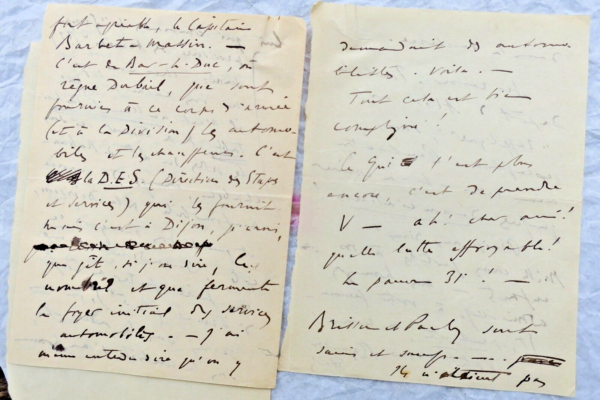 fort agréable, le Capitaine
Barbet-Massin. —
C'est de Bar-le-Duc, où
règne Dubail, que sont
fournies à ce corps d'armée
(et à la Division) les automo-
biles et les chauffeurs. C'est
la D.E.S. (Direction des Etapes
et Services) qui les fournit
mais c'est à Dijon, je crois,
que gît, si j'ose dire, le
nombril et que fermente
le foyer initial des services
automobiles. — J'ai
même entendu dire qu'on y
demandait des automo-
bilistes. Voilà. —
Tout cela est bien
compliqué !
Ce qui l'est plus
encore, c'est de prendre
V — ah ! cher ami !
quelle lutte effroyable !
Le pauvre 31e ! —
et sont
sains et saufs —
Ils n'étaient pas